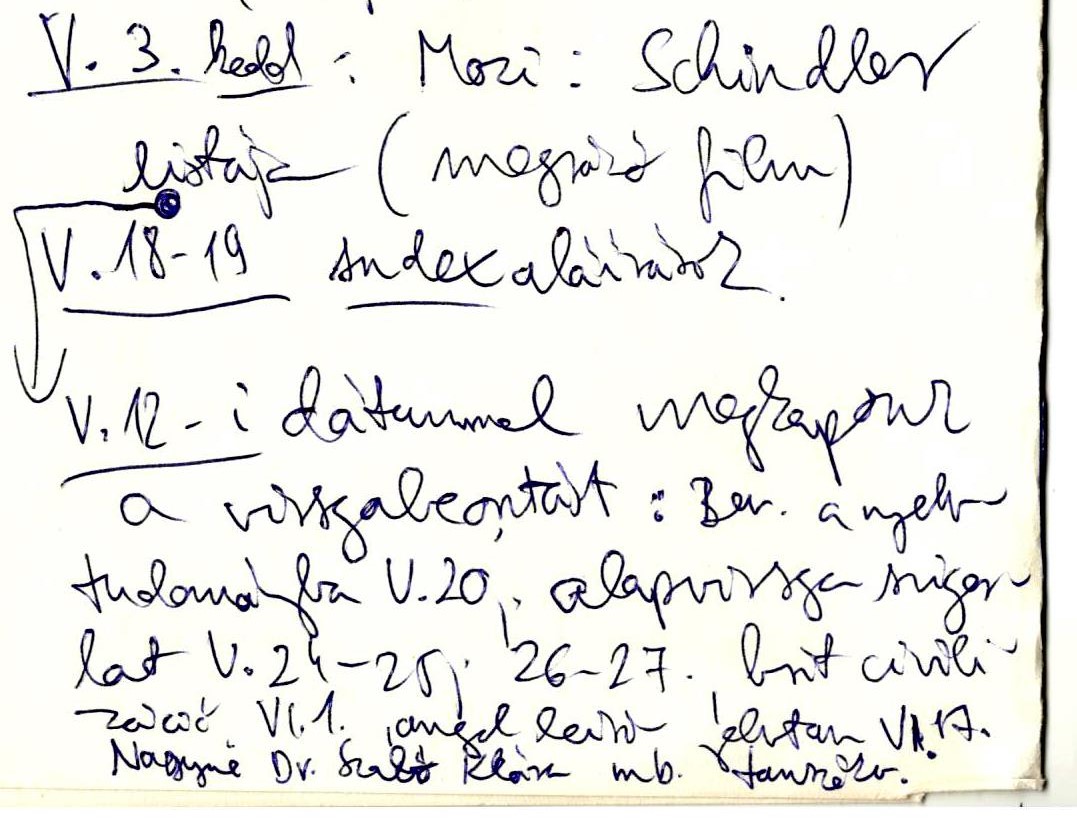 V. 3. kedd: Mozi: Schindler
listája (megrázó film)
V. 18-19 indexaláírások.
V. 12-i dátummal megkapom
a visszabeosztást: Bev. a nyelv
tudományba V. 20, alapvizsga szigor
lat V. 24-25, 26-27. brit civili
záció VI. 1. angol leíró VI. 17.
Nagyné Dr. Szabó Klára mb. tanszékv.